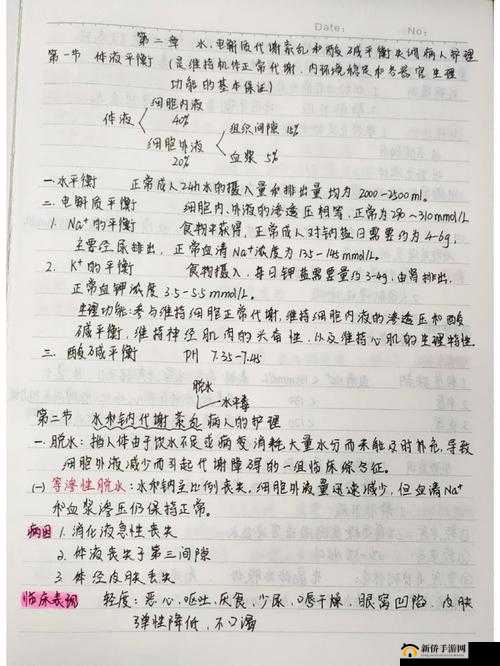 Date: No:
第二章 水、电解质代谢紊乱和酸碱平衡失调病人护理
第一节 体液平衡 (是维持机体正常代谢、内环境稳定和各器官生理
功能的基本保证)
细胞内液
40%
体液
组织间隙 15%
细胞外液
20%
血浆 5%
一.水平衡 正常成人24h水的摄入量和排出量均为2000~2500ml。
二.电解质平衡 细胞内、外液的渗透压相等,正常为290~310mmol/L
1. Na⁺的平衡 食物中获得,正常成人对钠盐日需要约为4-6g,
主要经尿排出,正常血清Na⁺浓度为135-145mmol/L。
2. K⁺的平衡 食物摄入,每日钾盐需要量约3-4g,由肾排出,
正常血钾浓度3.5-5.5mmol/L。
生理功能:参与维持细胞正常代谢,维持细胞内液的渗透压和酸
碱平衡,维持神经肌肉的兴奋性,以及维持心肌的生理特性
三.酸碱平衡 PH 7.35-7.45
脱水
水中毒
第二节 水和钠代谢紊乱病人的护理
一.脱水:指人体由于饮水不足或病变消耗大量水分而未能及时补充,导致
细胞外液减少而引起代谢障碍的一组临床综合征。
(一)等渗性脱水:水和钠呈比例丧失,细胞外液量迅速减少,但血清Na⁺
和血浆渗压仍保持正常。
病因 1.消化液急性丧失
2.体液丧失于第三间隙
3.体经皮肤丢失
临床表现 轻度:恶心、呕吐、厌食、少尿、口唇干燥、眼窝凹陷、皮肤
弹性降低,不口渴
新侨手游网